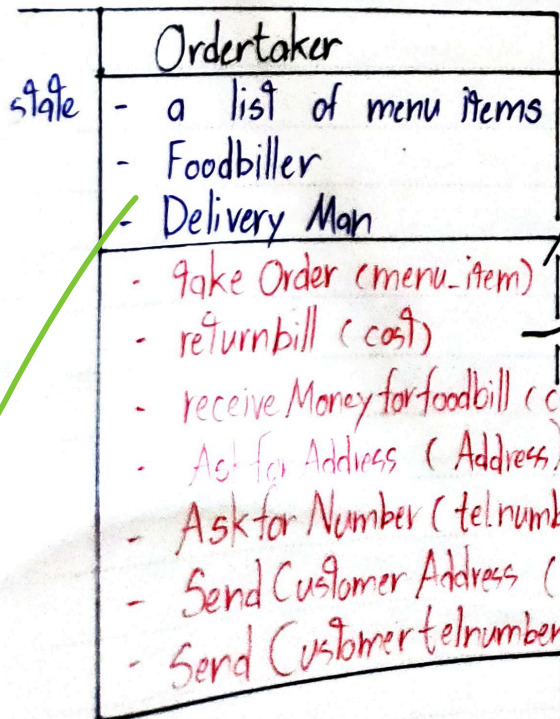 Ordertaker
state - a list of menu items
- Foodbiller
- Delivery Man
- take Order (menu_item)
- returnbill (cost)
- receive Money for foodbill (c
- Ask for Address (Address)
- Ask for Number (tel.numb
- Send Customer Address (
- Send Customer telnumber